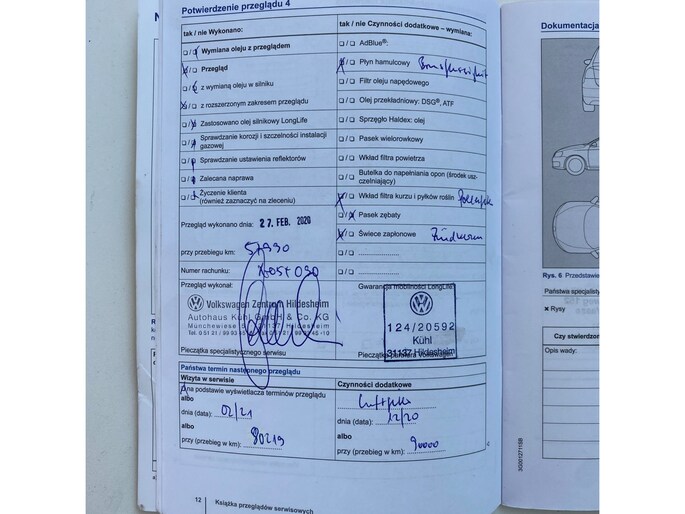 Potwierdzenie przeglądu 4
tak / nie Wykonano:
Wymiana oleju z przeglądem
Przegląd
z wymianą oleju w silniku
z rozszerzonym zakresem przeglądu
Zastosowano olej silnikowy LongLife
Sprawdzanie korozji i szczelności instalacji
gazowej
Sprawdzanie ustawienia reflektorów
Zalecana naprawa
Życzenie klienta
(również zaznaczyć na zleceniu)
Przegląd wykonano dnia: 27. FEB. 2020
przy przebiegu km:
Numer rachunku:
Przegląd wykonał:
Volkswagen Zentrum Hildesheim
Autohaus Kühl GmbH & Co. KG
Pieczątka specjalistycznego serwisu
tak / nie Czynności dodatkowe – wymiana:
AdBlue®:
Płyn hamulcowy Bremsflüssigkeit
Filtr oleju napędowego
Olej przekładniowy: DSG®, ATF
Sprzęgło Haldex: olej
Pasek wielorowkowy
Wkład filtra powietrza
Butelka do napełniania opon (środek usz-
czelniający)
Wkład filtra kurzu i pyłków roślin
Pasek zębaty
Świece zapłonowe Zündkerzen
Gwarancja mobilności LongLife
124/20592
Kühl
31137 Hildesheim
Pieczątka partnera Volkswagen
Państwa termin następnego przeglądu
Wizyta w serwisie
na podstawie wyświetlacza terminów przeglądu
albo
dnia (data): 02/21
albo
przy (przebieg w km): 80219
Czynności dodatkowe
dnia (data): 12/20
albo
przy (przebieg w km): 90000
12 Książka przeglądów serwisowych
Dokumentacja
Rys. 6 Przedstawie
Państwa specjalisty
× Rysy
Czy stwierdzono
Opis wady: